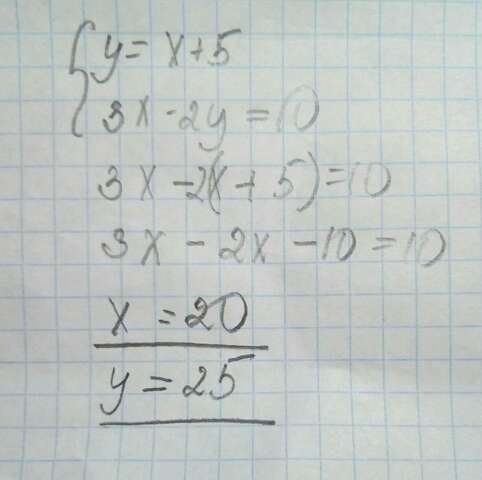 y = x + 5
3x - 2y = 10
3x - 2(x + 5) = 10
3x - 2x - 10 = 10
x = 20
y = 25